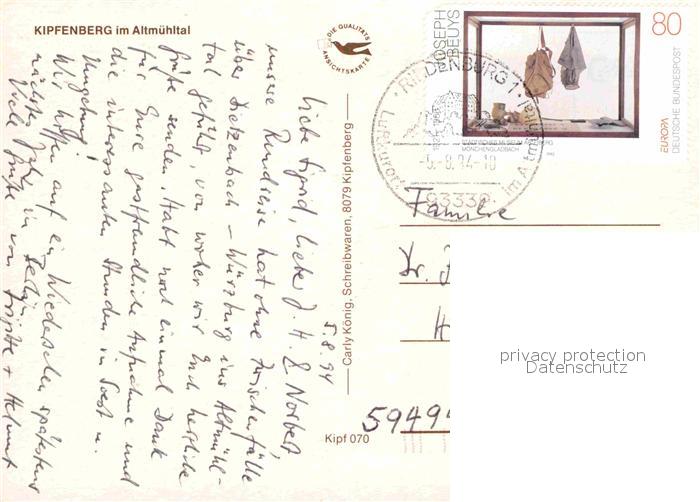 KIPFENBERG im Altmühltal
DIE QUALITÄTS
ANSICHTSKARTE
5.8.94
Liebe Sigrid, lieber J. H. & Norbert,
unsere Rundreise hat ohne Zwischenfälle
über Dietzenbach – Würzburg ins Altmühl-
tal geführt, von woher wir Euch herzliche
Grüße senden. Habt noch einmal Dank
für Eure gastfreundliche Aufnahme und
die interessanten Stunden in Soest u.
Umgebung!
Wir hoffen auf ein Wiedersehen spätestens
nächstes Jahr in Berlin.
Viele Grüße von Brigitte + Helmut
Carly König, Schreibwaren, 8079 Kipfenberg
Kipf 070
JOSEPH
BEUYS
80
EUROPA
DEUTSCHE BUNDESPOST
MÖNCHENGLADBACH
RIEDENBURG 1
im Altmühltal
Luftkurort
-5.-8.94-10
93339
Familie
Dr. J
H
5949
privacy protection
Datenschutz